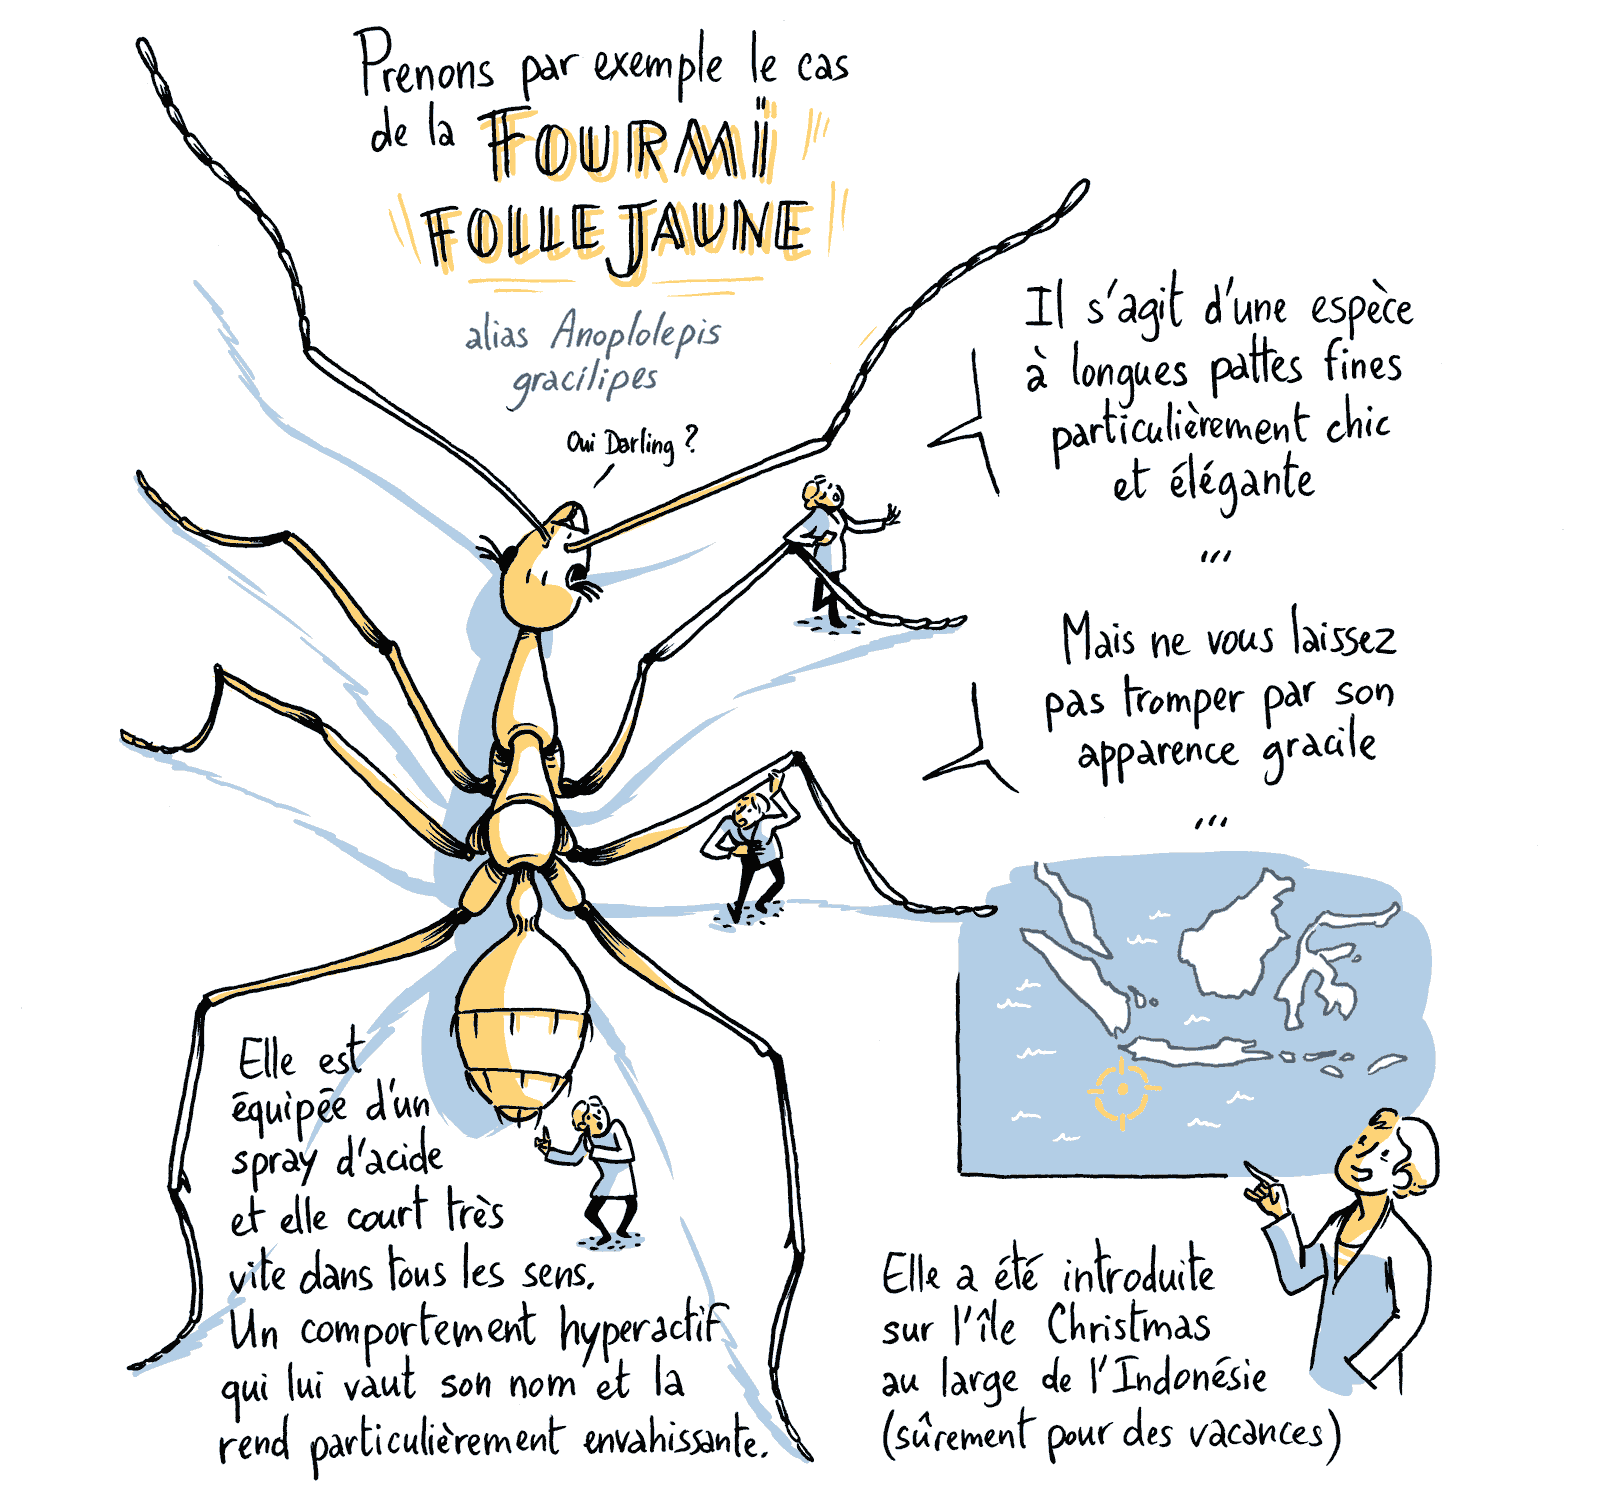 Prenons par exemple le cas
de la FOURMÏ
FOLLE JAUNE
alias Anoplolepis
gracilipes
Oui Darling ?
Il s'agit d'une espèce
à longues pattes fines
particulièrement chic
et élégante
...
Mais ne vous laissez
pas tromper par son
apparence gracile
...
Elle est
équipée d'un
spray d'acide
et elle court très
vite dans tous les sens.
Un comportement hyperactif
qui lui vaut son nom et la
rend particulièrement envahissante.
Elle a été introduite
sur l'île Christmas
au large de l'Indonésie
(sûrement pour des vacances)